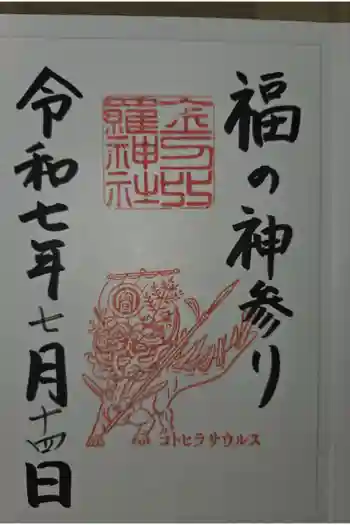 福の神参り
金刀比羅神社
コトヒラサウルス
令和七年七月十四日